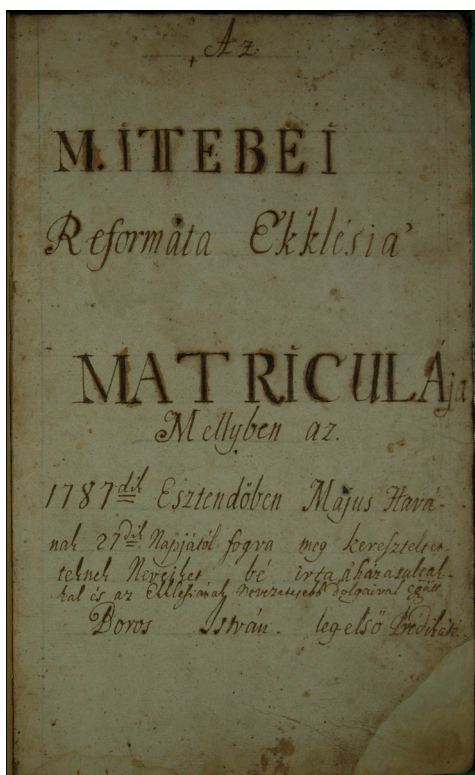 Az
M. ITTEBEI
Reformáta Ekklésia'
MATRICULÁja
Mellyben az.
1787dik Esztendőben Május Havá-
nak 27dik Napjától fogva meg kereszteltet-
teknek Neveiket bé irta a házasultak-
kal és az Ekklésiának nevezetesebb dolgaival együtt
Boros István. legelső Prédikátó.